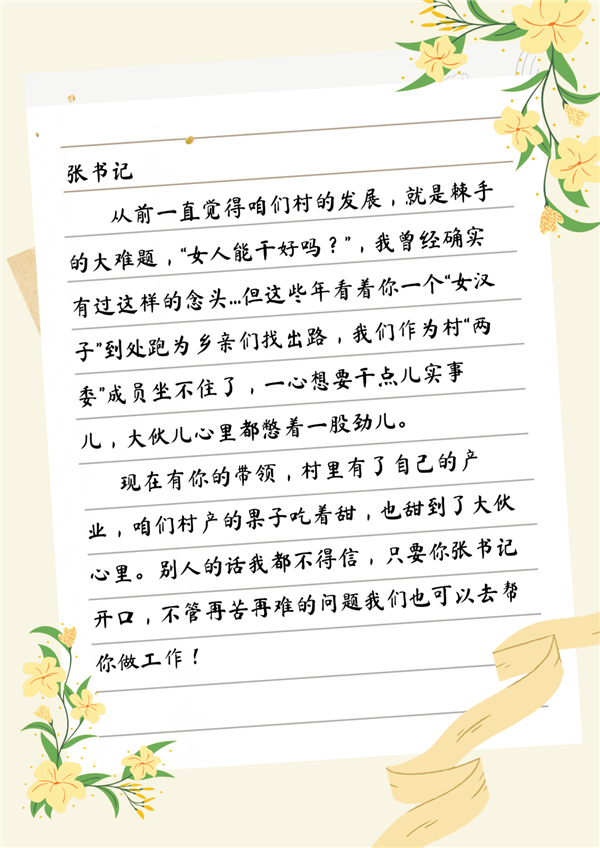 张书记
从前一直觉得咱们村的发展，就是棘手
的大难题，“女人能干好吗？”，我曾经确实
有过这样的念头...但这些年看着你一个“女汉
子”到处跑为乡亲们找出路，我们作为村“两
委”成员坐不住了，一心想要干点儿实事
儿，大伙儿心里都憋着一股劲儿。
现在有你的带领，村里有了自己的产
业，咱们村产的果子吃着甜，也甜到了大伙
心里。别人的话我都不得信，只要你张书记
开口，不管再苦再难的问题我们也可以去帮
你做工作！